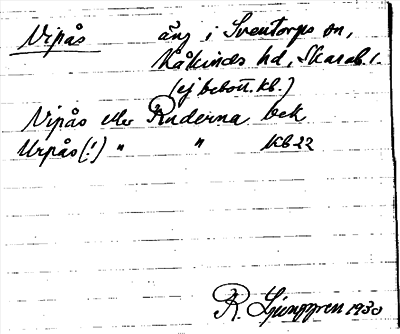 Vipås äng i Sventorps sn,
Kåkinds hd, Skarab. l.
(ej bebott. kb.)
Vipås eller Ruderna bek
Urpås (!) " " kb 22
R. Ljunggren 1930